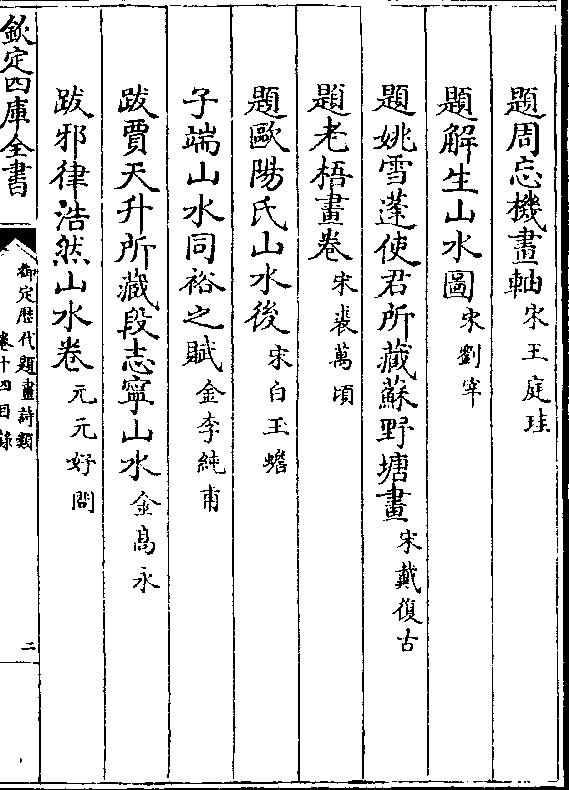 題周忘機畫軸宋王庭珪
題解生山水圖宋劉宰
題姚雪蓬使君所藏蘇野塘畫宋戴復古
題老梧畫卷宋裘萬頃
題歐陽氏山水後宋白玉蟾
子端山水同裕之賦金李純甫
跋賈天升所藏段志寧山水金高永
跋邪律浩然山水卷元元好問
欽定四庫全書
御定歴代題畫詩類
卷十四目錄
二